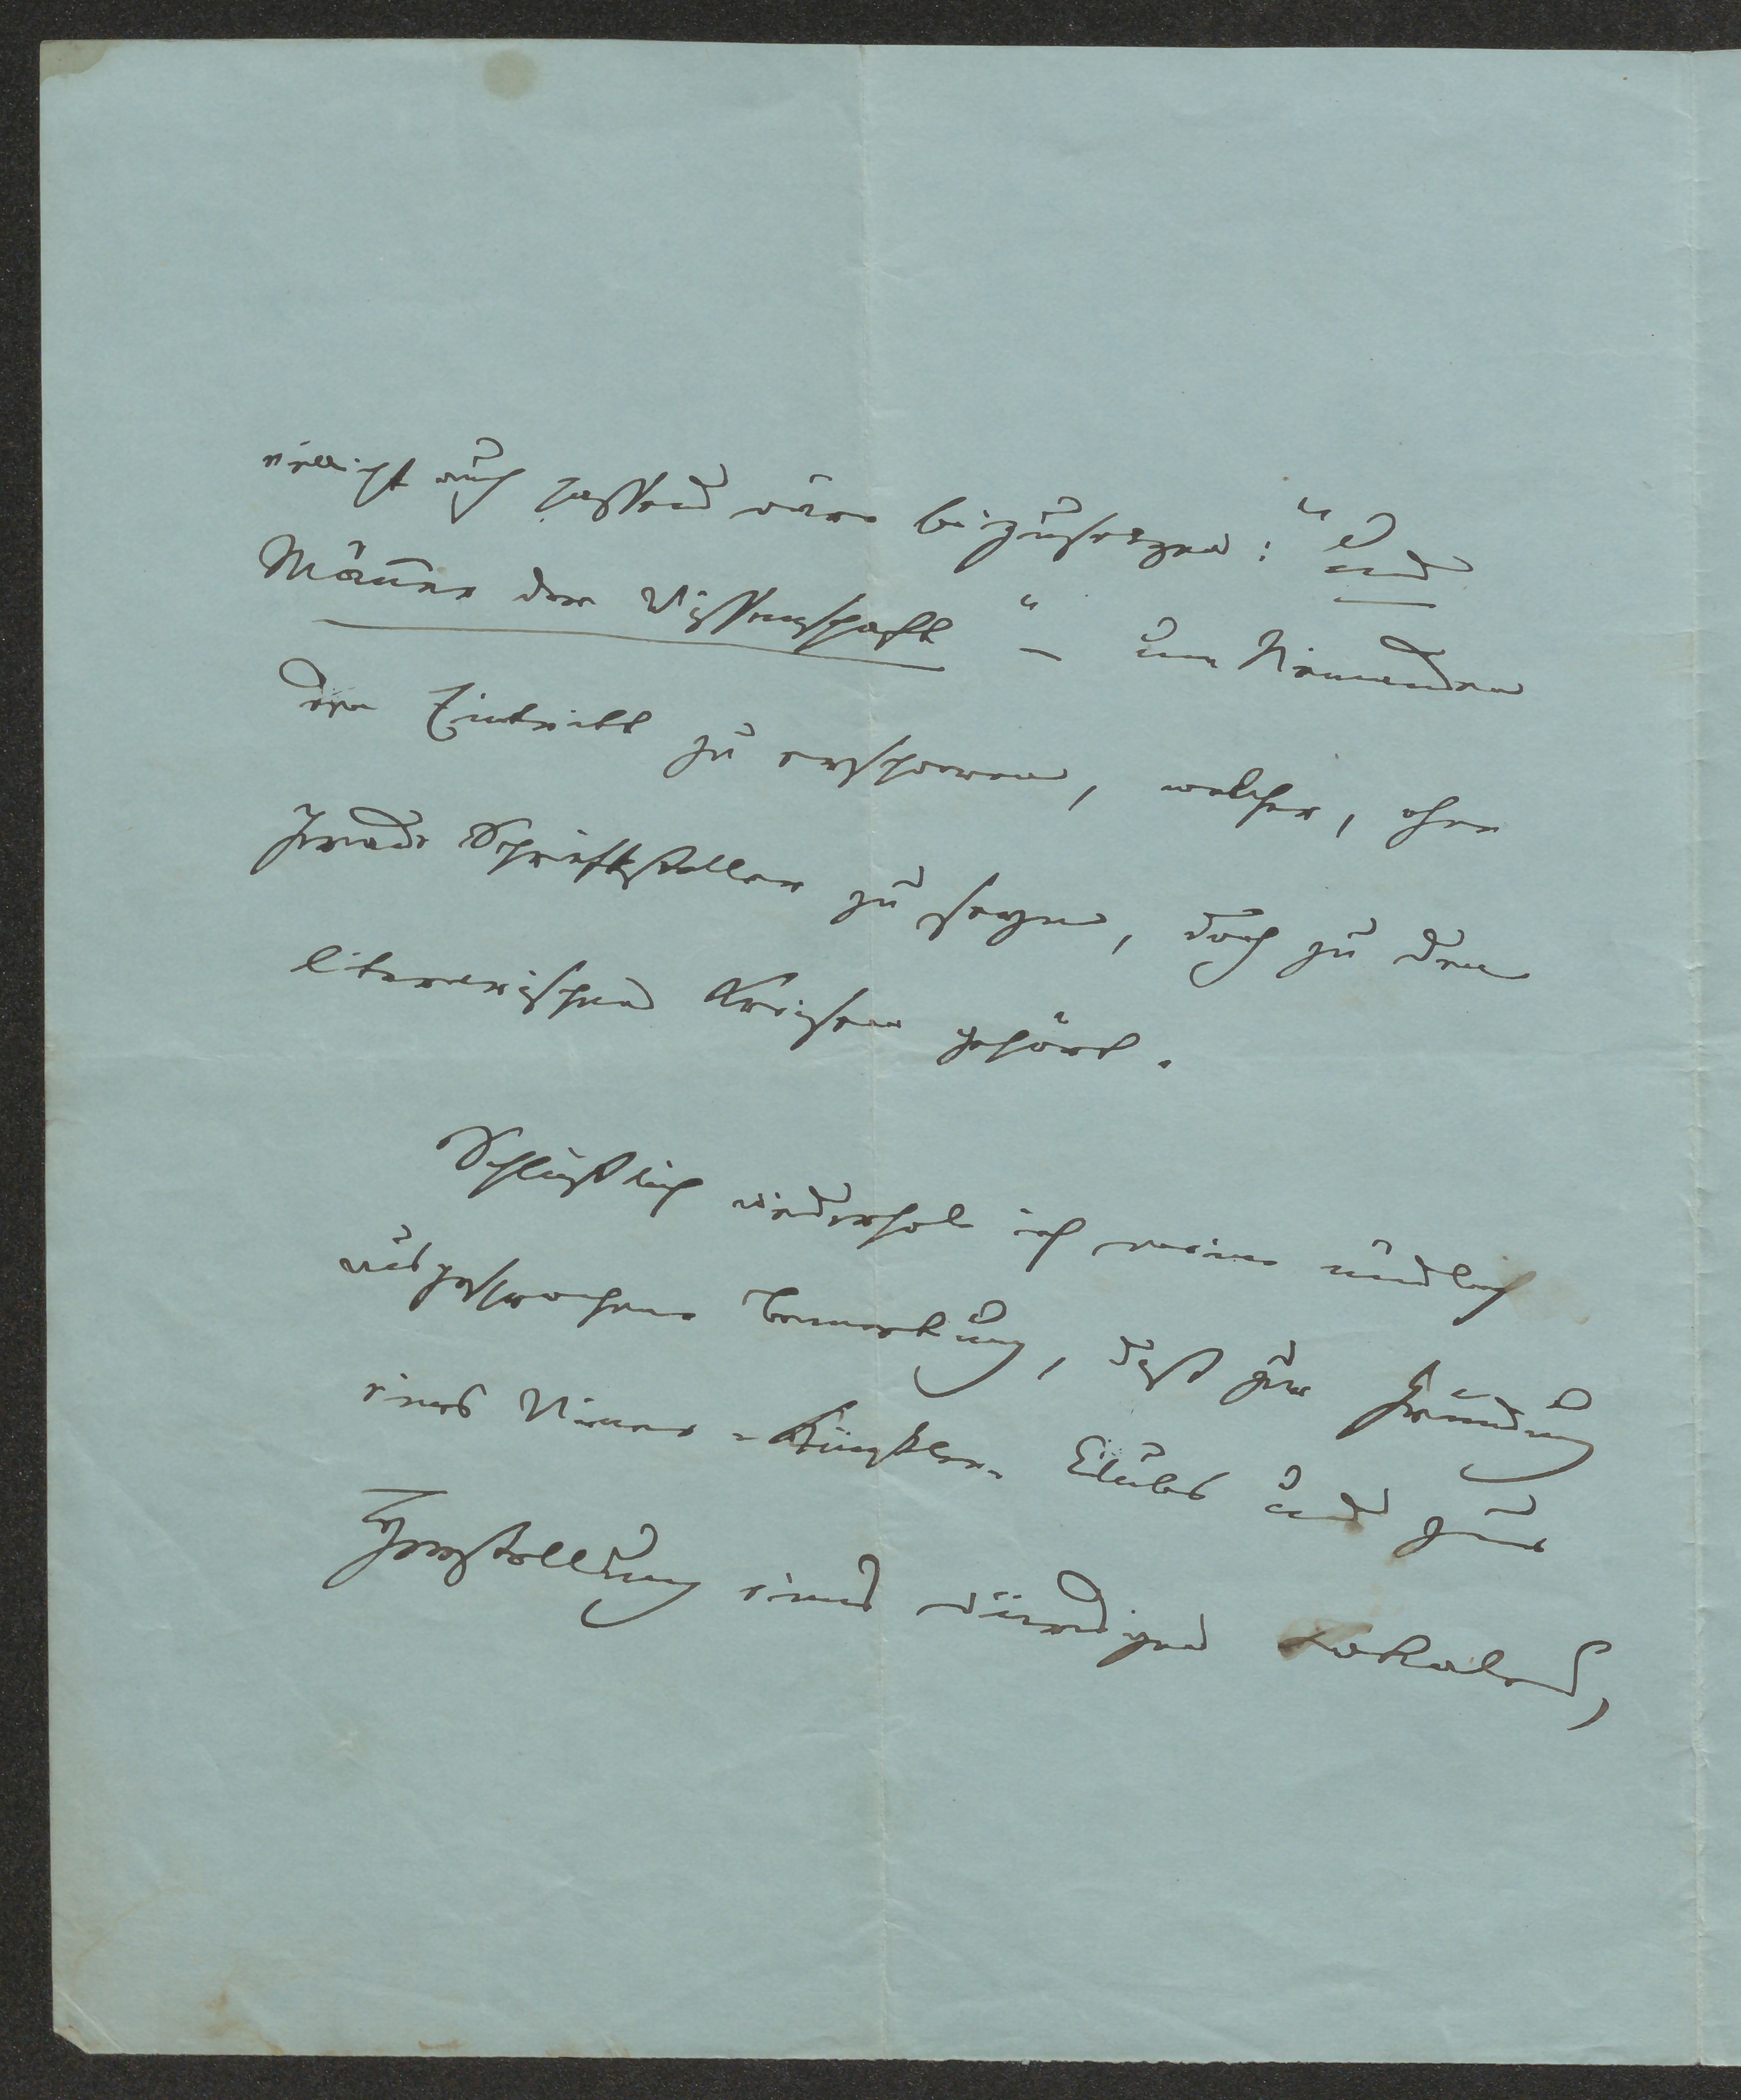 vielleicht auch passend wäre beizusetzen: "und
Männer der Wissenschaft" – um Niemanden
den Eintritt zu ersparen, welcher, ohne
gerade Schriftsteller zu seyn, doch zu den
literarischen Kreisen gehört.
Schlüßlich wiederhole ich meine mündlich
ausgesprochene Bemerkung, daß zur Gründung
eines Wiener-Künstler-Clubs und zur
Herstellung eines würdigen Lokales,